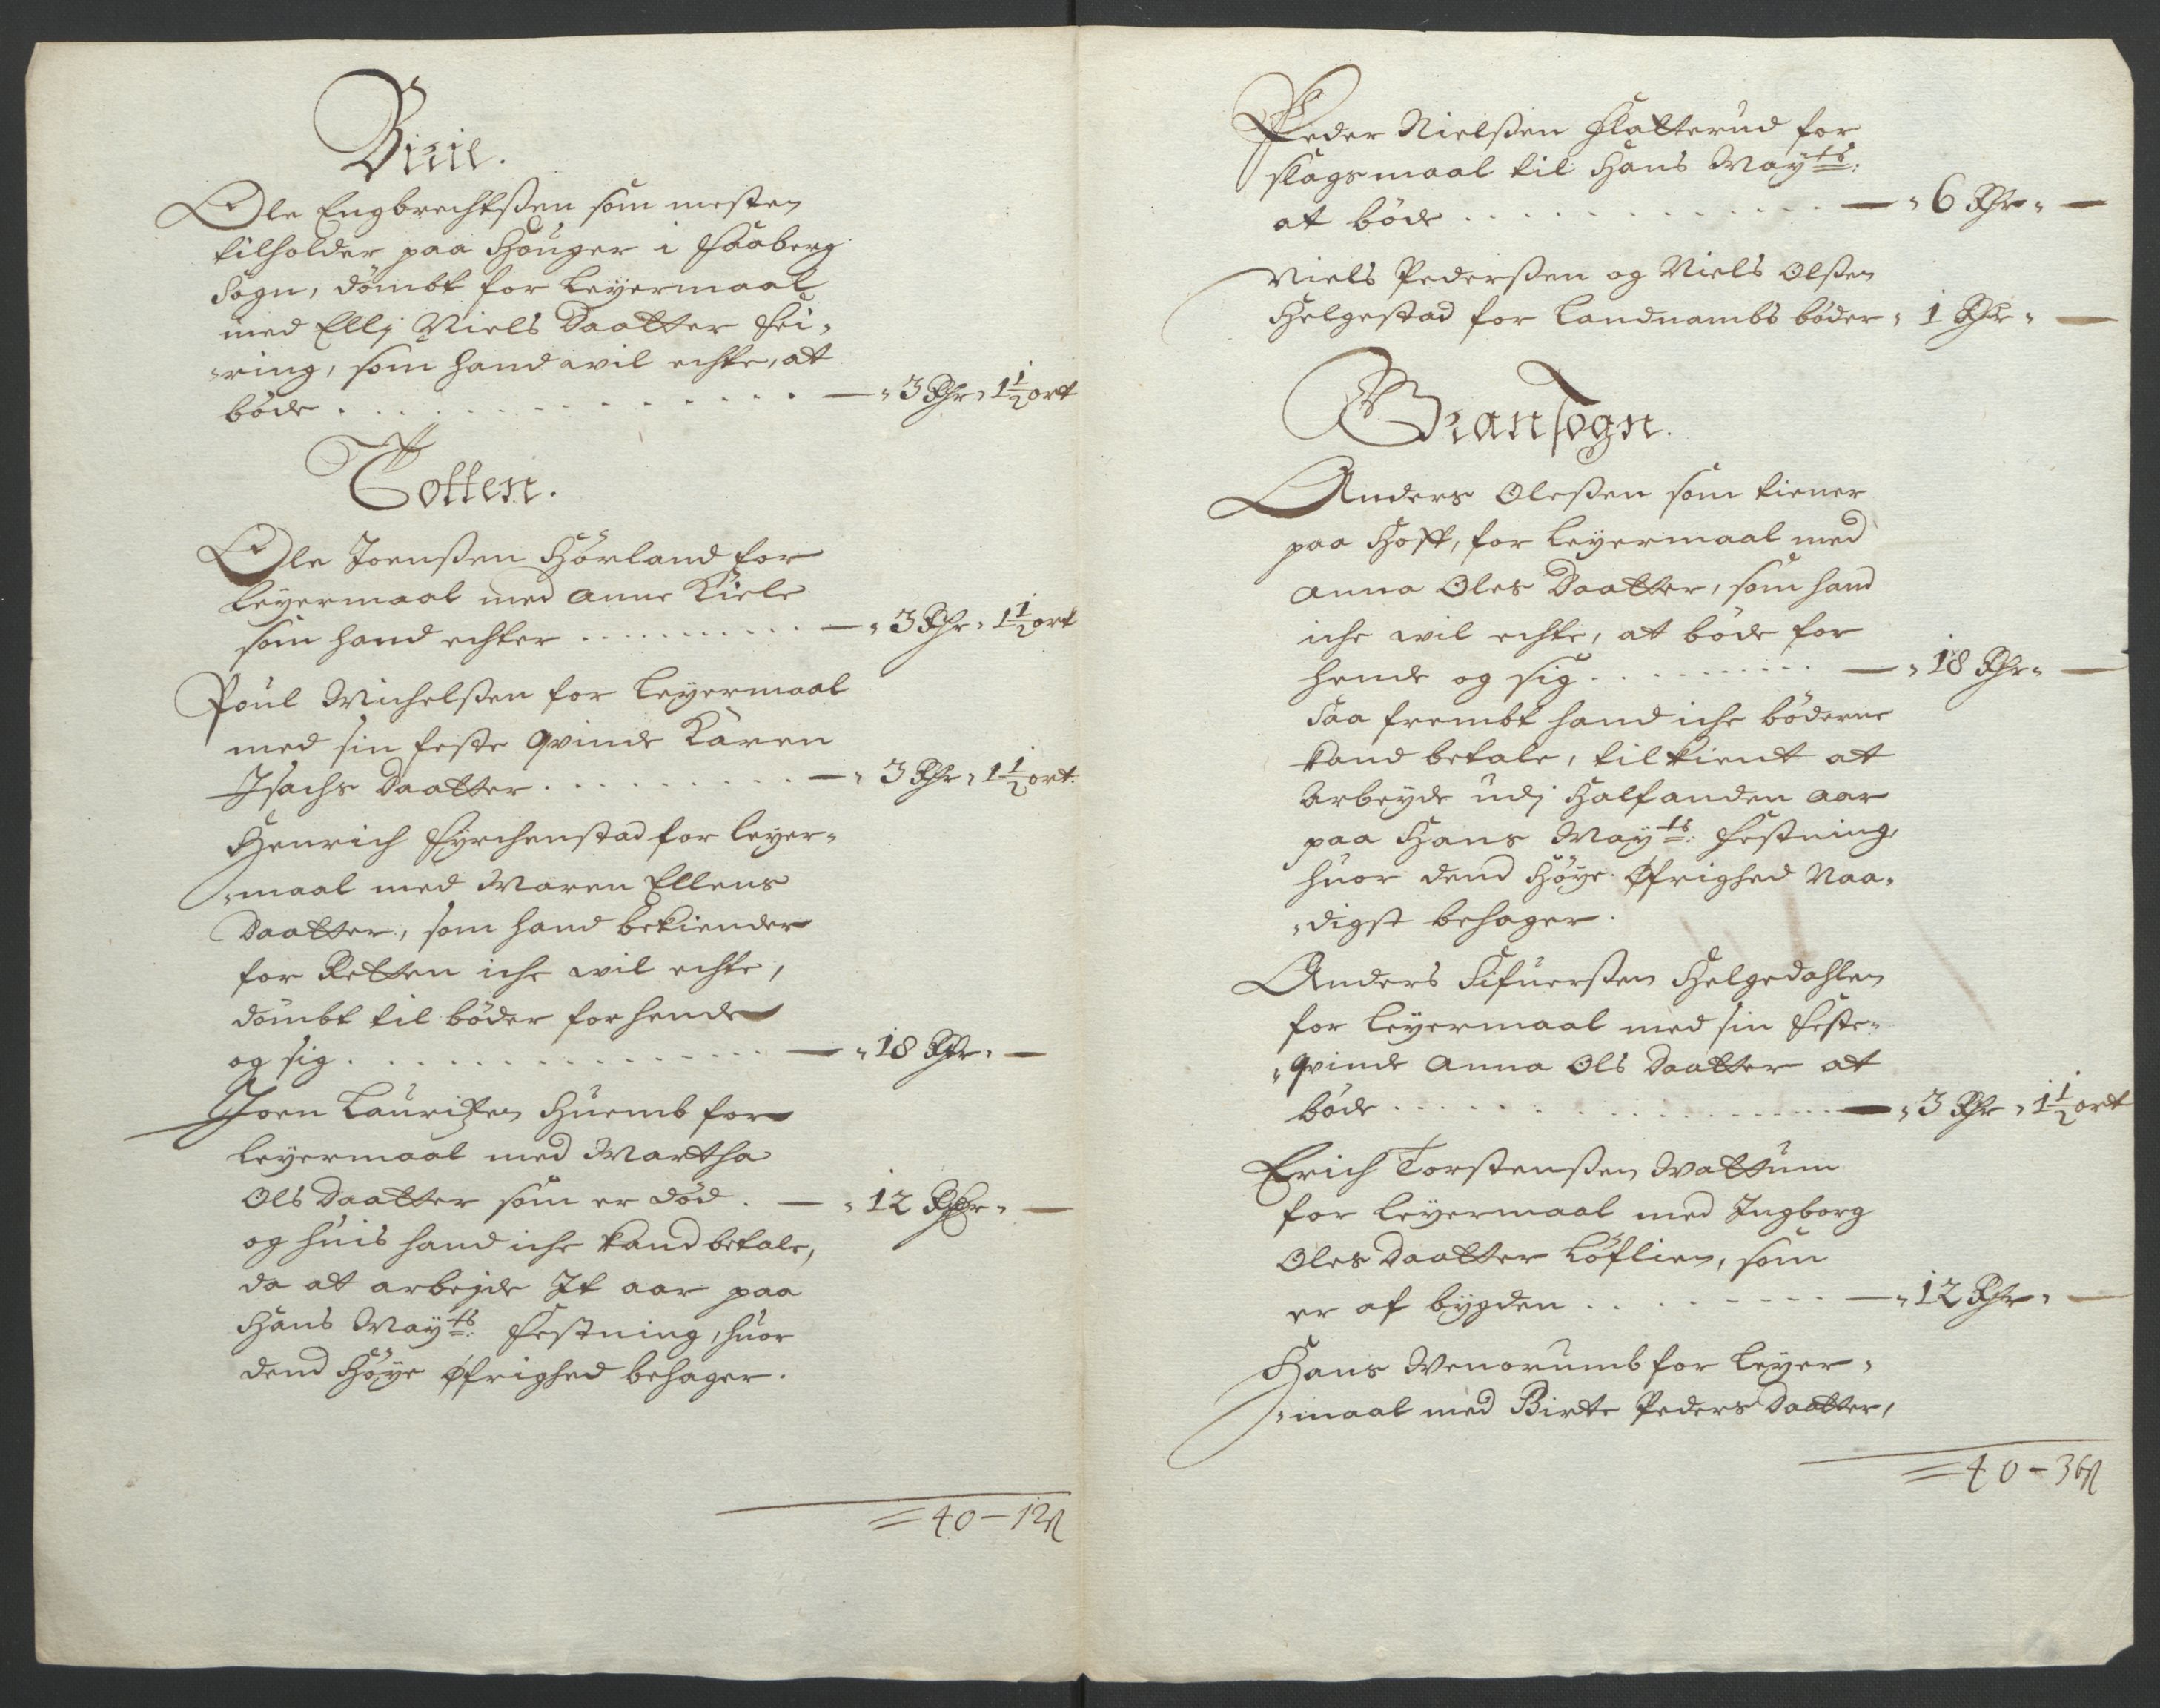 Birie.
Ole Engbrechtßen som mesten
tilholder paa Houger i Faaberg
Sogn, dömbt for Leyermaal
med Ellj Niels Daatter Sei,
,ring, som hand wil echte, at
böde . . . . . . . . . . . . . . — „ 3 Rhr „ 1½ ort
Totten.
Ole Joenßen Hörland for
Leyermaal med Anne Kiele
som hand echter . . . . . . . . . . — „ 3 Rhr „ 1½ ort
Poul Michelßen for Leyermaal
med sin feste Qvinde Karen
Isachs Daatter . . . . . . . . . — „ 3 Rhr „ 1½ ort.
Henrich Fyrchenstad for leyer„
„maal med Maren Ellens
Daatter, som hand bekiender
for Retten iche wil echte,
dömbt til böder for hende
og sig . . . . . . . . . . . . . . . — „ 18 Rhr „ —
Joen Lauritzen Huemb for
leyermaal med Martha
Ols Daatter som er död . — „ 12 Rhr „ —
og huis hand iche kand betale,
da at arbejde It aar paa
Hans Mayts: Festning, huor
dend Höye Øfrighed behager.
= 40 – 12 ß
Peder Nielßen Flatterud for
slagsmaal til Hans Mayts:
at böde . . . . . . . . . . . . . — „ 6 Rhr „ —
Niels Pederßen og Niels Olßen
Helgestad for Landnambs böder „ 1 Rhr „ —
Gran sogn.
Anders Oleßen som tiener
paa Hoff, for leyermaal med
Anna Oles Daatter, som hand
iche wil echte, at böde for
hende og sig . . . . . . . . . . — „ 18 Rhr „ —
Saa frembt hand iche böderne
kand betale, tilkient at
Arbeyde udj Halfanden Aar
paa Hans Mayts: Festning,
huor dend Höye Øfrighed Naa„
„digst behager.
Anders Sifuerßen Helgedahlen
for leyermaal med sin Feste„
„Qvinde Anna Ols Daatter at
böde . . . . . . . . . . . . . . . . — „ 3 Rhr „ 1½ ort
Erich Torstenßen Wattum
for leyermaal med Ingborg
Oles Daatter Löflien, som
er af bygden . . . . . . . . . — „ 12 Rhr „ —
Hans Wenorumb for Leyer„
„maal med Birte Peders Daatter,
= 40 – 36 ß